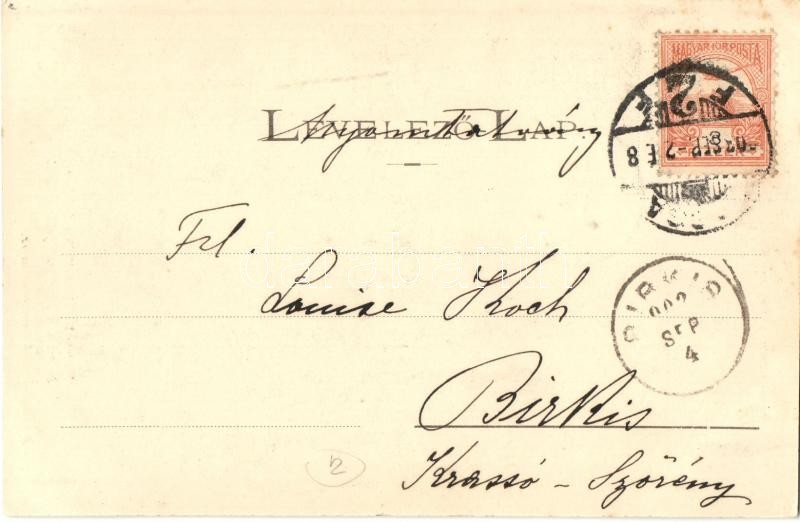 MAGYAR KIR. POSTA
LEVELEZŐ LAP.
Nyomtatvány
Frl.
Louise Koch
Birkis
Krassó - Szörény
BIRKIS
SEP
4
2
darabanth